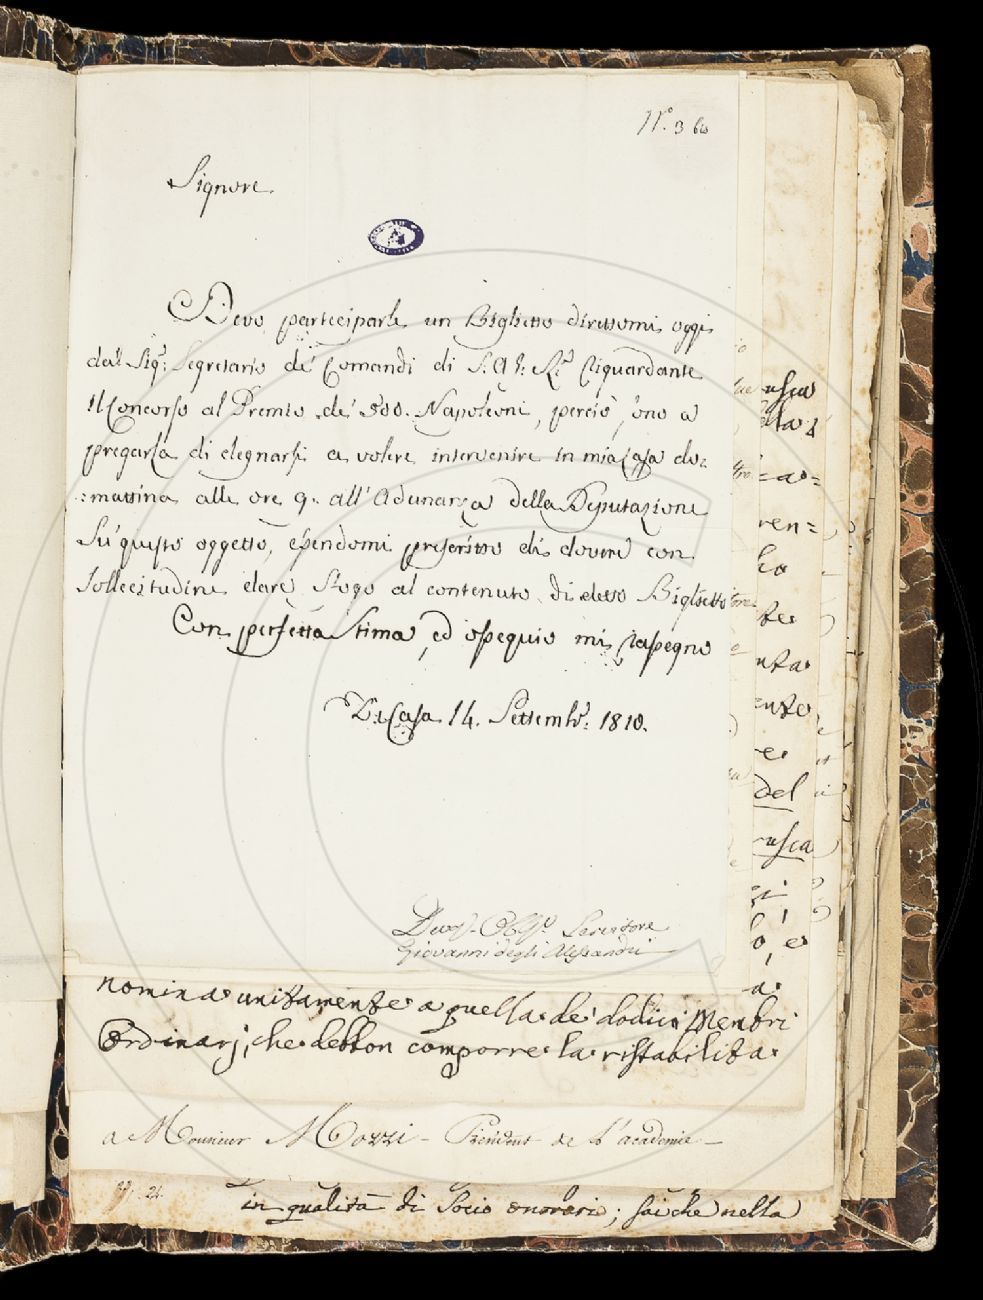 N.° 3 bis
Signore
Devo parteciparle un Biglietto direttomi oggi
dal Sig.r Segretario de' Comandi di S. A. I. R.le riguardante
il Concorso al Premio de' 500. Napoleoni, perciò sono a
pregarla di degnarsi a volere intervenire in mia Casa do=
=mattina alle ore 9. all'Adunanza della Deputazione
Sù questo oggetto, essendomi prescritto di dovere con
Sollecitudine dare Sfogo al contenuto di detto Biglietto
Con perfetta Stima, ed ossequio mi rassegno
Di Casa 14. Settemb.e 1810.
Servitore
Giovanni degli Alessandri
nomina unitamente a quella de' dodici Membri
Ordinarj, che debbon comporre la ristabilita
a Monsieur Mozzi - Président de l'académie -
in qualità di Socio onorario; sai che nella